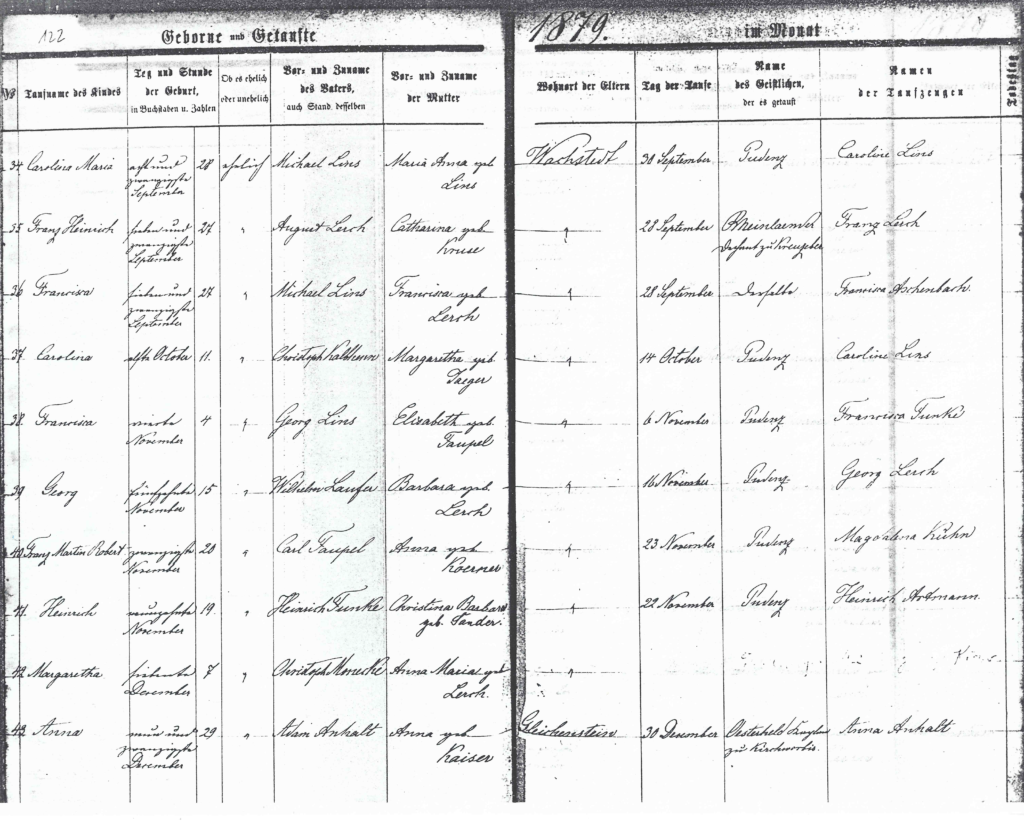 122 Geborne und Getaufte 1879. im Monat
№ Taufname des Kindes
Tag und Stunde der Geburt, in Buchstaben u. Zahlen
Ob es ehelich oder unehelich
Vor- und Zuname des Vaters, auch Stand desselben
Vor- und Zuname der Mutter
Wohnort der Eltern
Tag der Taufe
Name des Geistlichen, der es getauft
Namen der Taufzeugen
Todestag
34 Carolina Maria acht und 28 ehelich Michael Lins Maria Anna geb Wachstedt 30 September Pudenz Caroline Lins
zwanzigste Lins
September
35 Franz Heinrich sieben und 27 " August Lerch Catharina geb " 28 September Franz Lerch
zwanzigste Kruse Dechant zu
September
36 Francisca sieben und 27 " Michael Lins Francisca geb " 28 September Derselbe Francisca Aschenbach.
zwanzigste Lerch
September
37. Carolina elfte October 11. " Christoph Margaretha geb " 14 October Pudenz Caroline Lins
Jaeger
38. Francisca vierte 4 " Georg Lins Elisabeth geb. " 6 November Pudenz Francisca Funke
November Taupel
39 Georg fünfzehnte 15 " Wilhelm Laufer Barbara geb. " 16 November Pudenz Georg Lerch
November Lerch
40 Franz Martin Robert zwanzigste 20 " Carl Taupel Anna geb " 23 November Pudenz Magdalena Kühn
November Koerner
41. Heinrich neunzehnte 19 " Heinrich Funke Christina Barbara " 22 November Pudenz Heinrich Artmann
November geb. Sander.
42 Margaretha siebente 7 " Christoph Monecke Anna Maria geb "
December Lerch.
43. Anna neun und 29 " Adam Anhalt Anna geb Gleichenstein 30 December Oesterheld Anna Anhalt
zwanzigste Kaiser zu Kirchworbis.
December